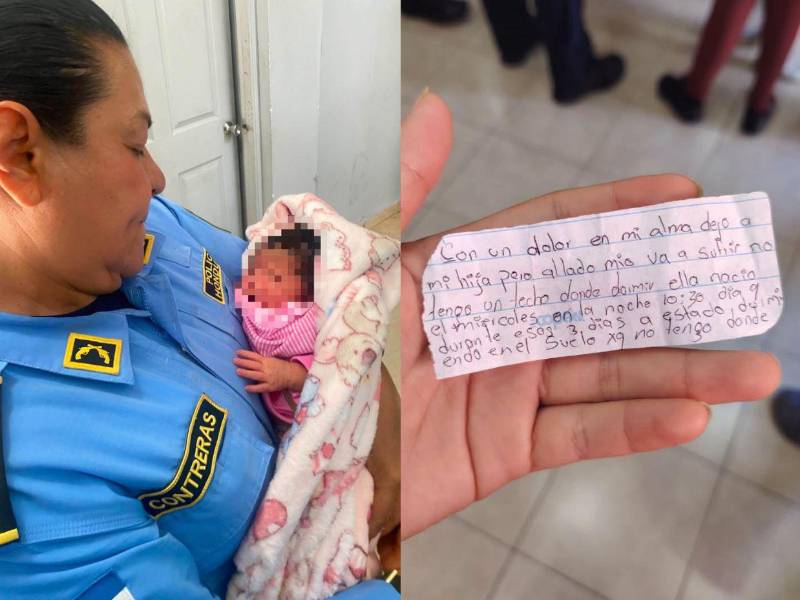 POLICIA
HONDU
CONTRERAS
Con un dolor en mi alma dejo a
mi hija pero allado mio va a sufrir no
tengo un techo donde dormir ella nacio
el miercoles en la noche 10:30 dia 9
durante esos 3 dias a estado durmi
endo en el suelo xq no tengo donde